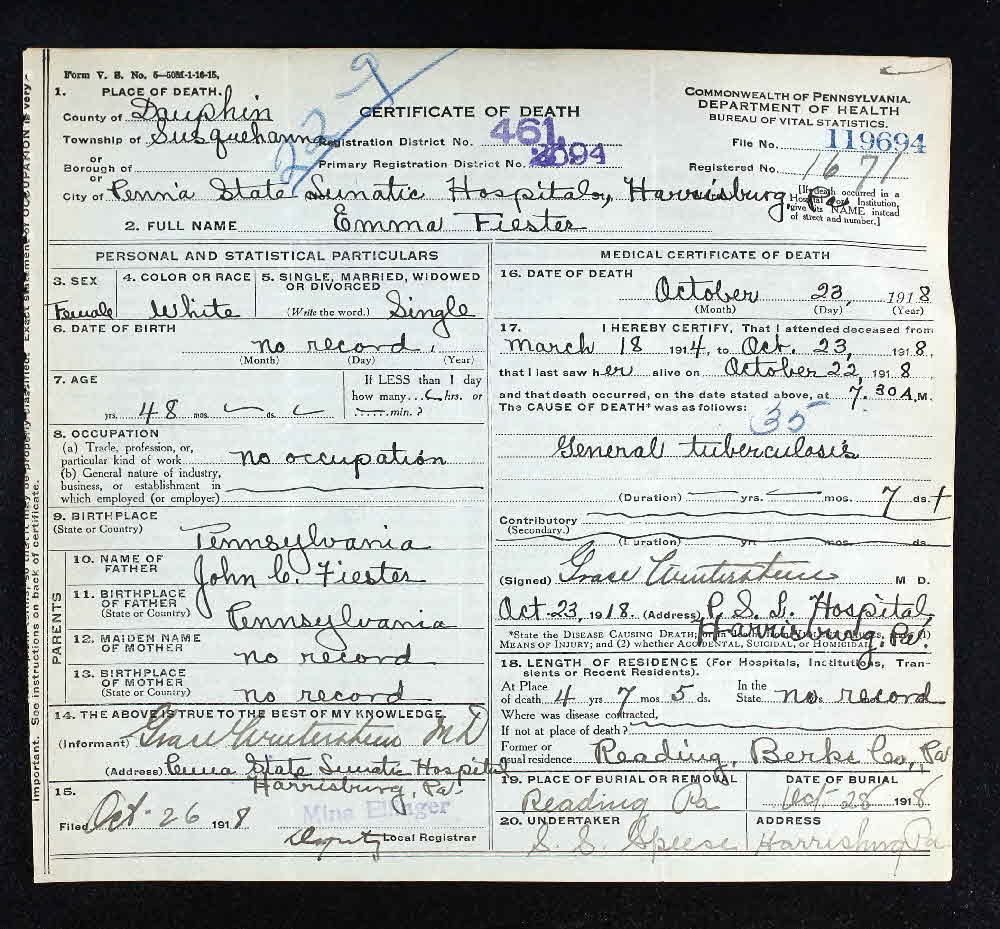 Form V. S. No. 5—50M-1-16-15.
1. PLACE OF DEATH.
County of Dauphin
Township of Susquehanna
or
Borough of
or
City of Penn'a State Lunatic Hospital, Harrisburg, Pa.
22-9
CERTIFICATE OF DEATH
Registration District No. 461
Primary Registration District No.
COMMONWEALTH OF PENNSYLVANIA.
DEPARTMENT OF HEALTH
BUREAU OF VITAL STATISTICS.
File No. 119694
Registered No. 1671
[If death occurred in a
Hospital or Institution,
give its NAME instead
of street and number.]
2. FULL NAME Emma Fiester
PERSONAL AND STATISTICAL PARTICULARS
3. SEX
Female
4. COLOR OR RACE
White
5. SINGLE, MARRIED, WIDOWED
OR DIVORCED
(Write the word.) Single
6. DATE OF BIRTH
no record,
(Month) (Day) (Year)
7. AGE
yrs. 48 mos. ds.
If LESS than 1 day
how many hrs. or
min. ?
8. OCCUPATION
(a) Trade, profession, or,
particular kind of work no occupation
(b) General nature of industry,
business, or establishment in
which employed (or employer)
9. BIRTHPLACE
(State or Country)
Pennsylvania
PARENTS
10. NAME OF
FATHER
John C. Fiester
11. BIRTHPLACE
OF FATHER
(State or Country)
Pennsylvania
12. MAIDEN NAME
OF MOTHER
no record
13. BIRTHPLACE
OF MOTHER
(State or Country)
no record
14. THE ABOVE IS TRUE TO THE BEST OF MY KNOWLEDGE
(Informant) Grace Winterstein MD
(Address) Penna State Lunatic Hospital
Harrisburg, Pa.
15.
Filed Oct-26 1918
Mina
Deputy Local Registrar
MEDICAL CERTIFICATE OF DEATH
16. DATE OF DEATH
October 23, 1918
(Month) (Day) (Year)
17. I HEREBY CERTIFY, That I attended deceased from
March 18 1914, to Oct. 23, 1918,
that I last saw her alive on October 22, 1918,
and that death occurred, on the date stated above, at 7.30 A.M.
The CAUSE OF DEATH* was as follows:
35
General tuberculosis
(Duration) yrs. mos. 7 ds. +
Contributory
(Secondary.)
(Duration) yrs. mos. ds.
(Signed) Grace Winterstein M D.
Oct-23, 1918. (Address) P. S. L. Hospital
Harrisburg, Pa.
*State the DISEASE CAUSING DEATH;
MEANS OF INJURY; and (2) whether ACCIDENTAL, SUICIDAL, or HOMICIDAL.
18. LENGTH OF RESIDENCE (For Hospitals, Institutions, Tran-
sients or Recent Residents).
At Place
of death 4 yrs 7 mos 5 ds.
In the
State no record
Where was disease contracted,
If not at place of death ?
Former or
usual residence Reading, Berks Co., Pa
19. PLACE OF BURIAL OR REMOVAL
Reading Pa
DATE OF BURIAL
Oct-28 1918
20. UNDERTAKER
S. S. Speese
ADDRESS
Harrisburg Pa
important. See instructions on back of certificate.